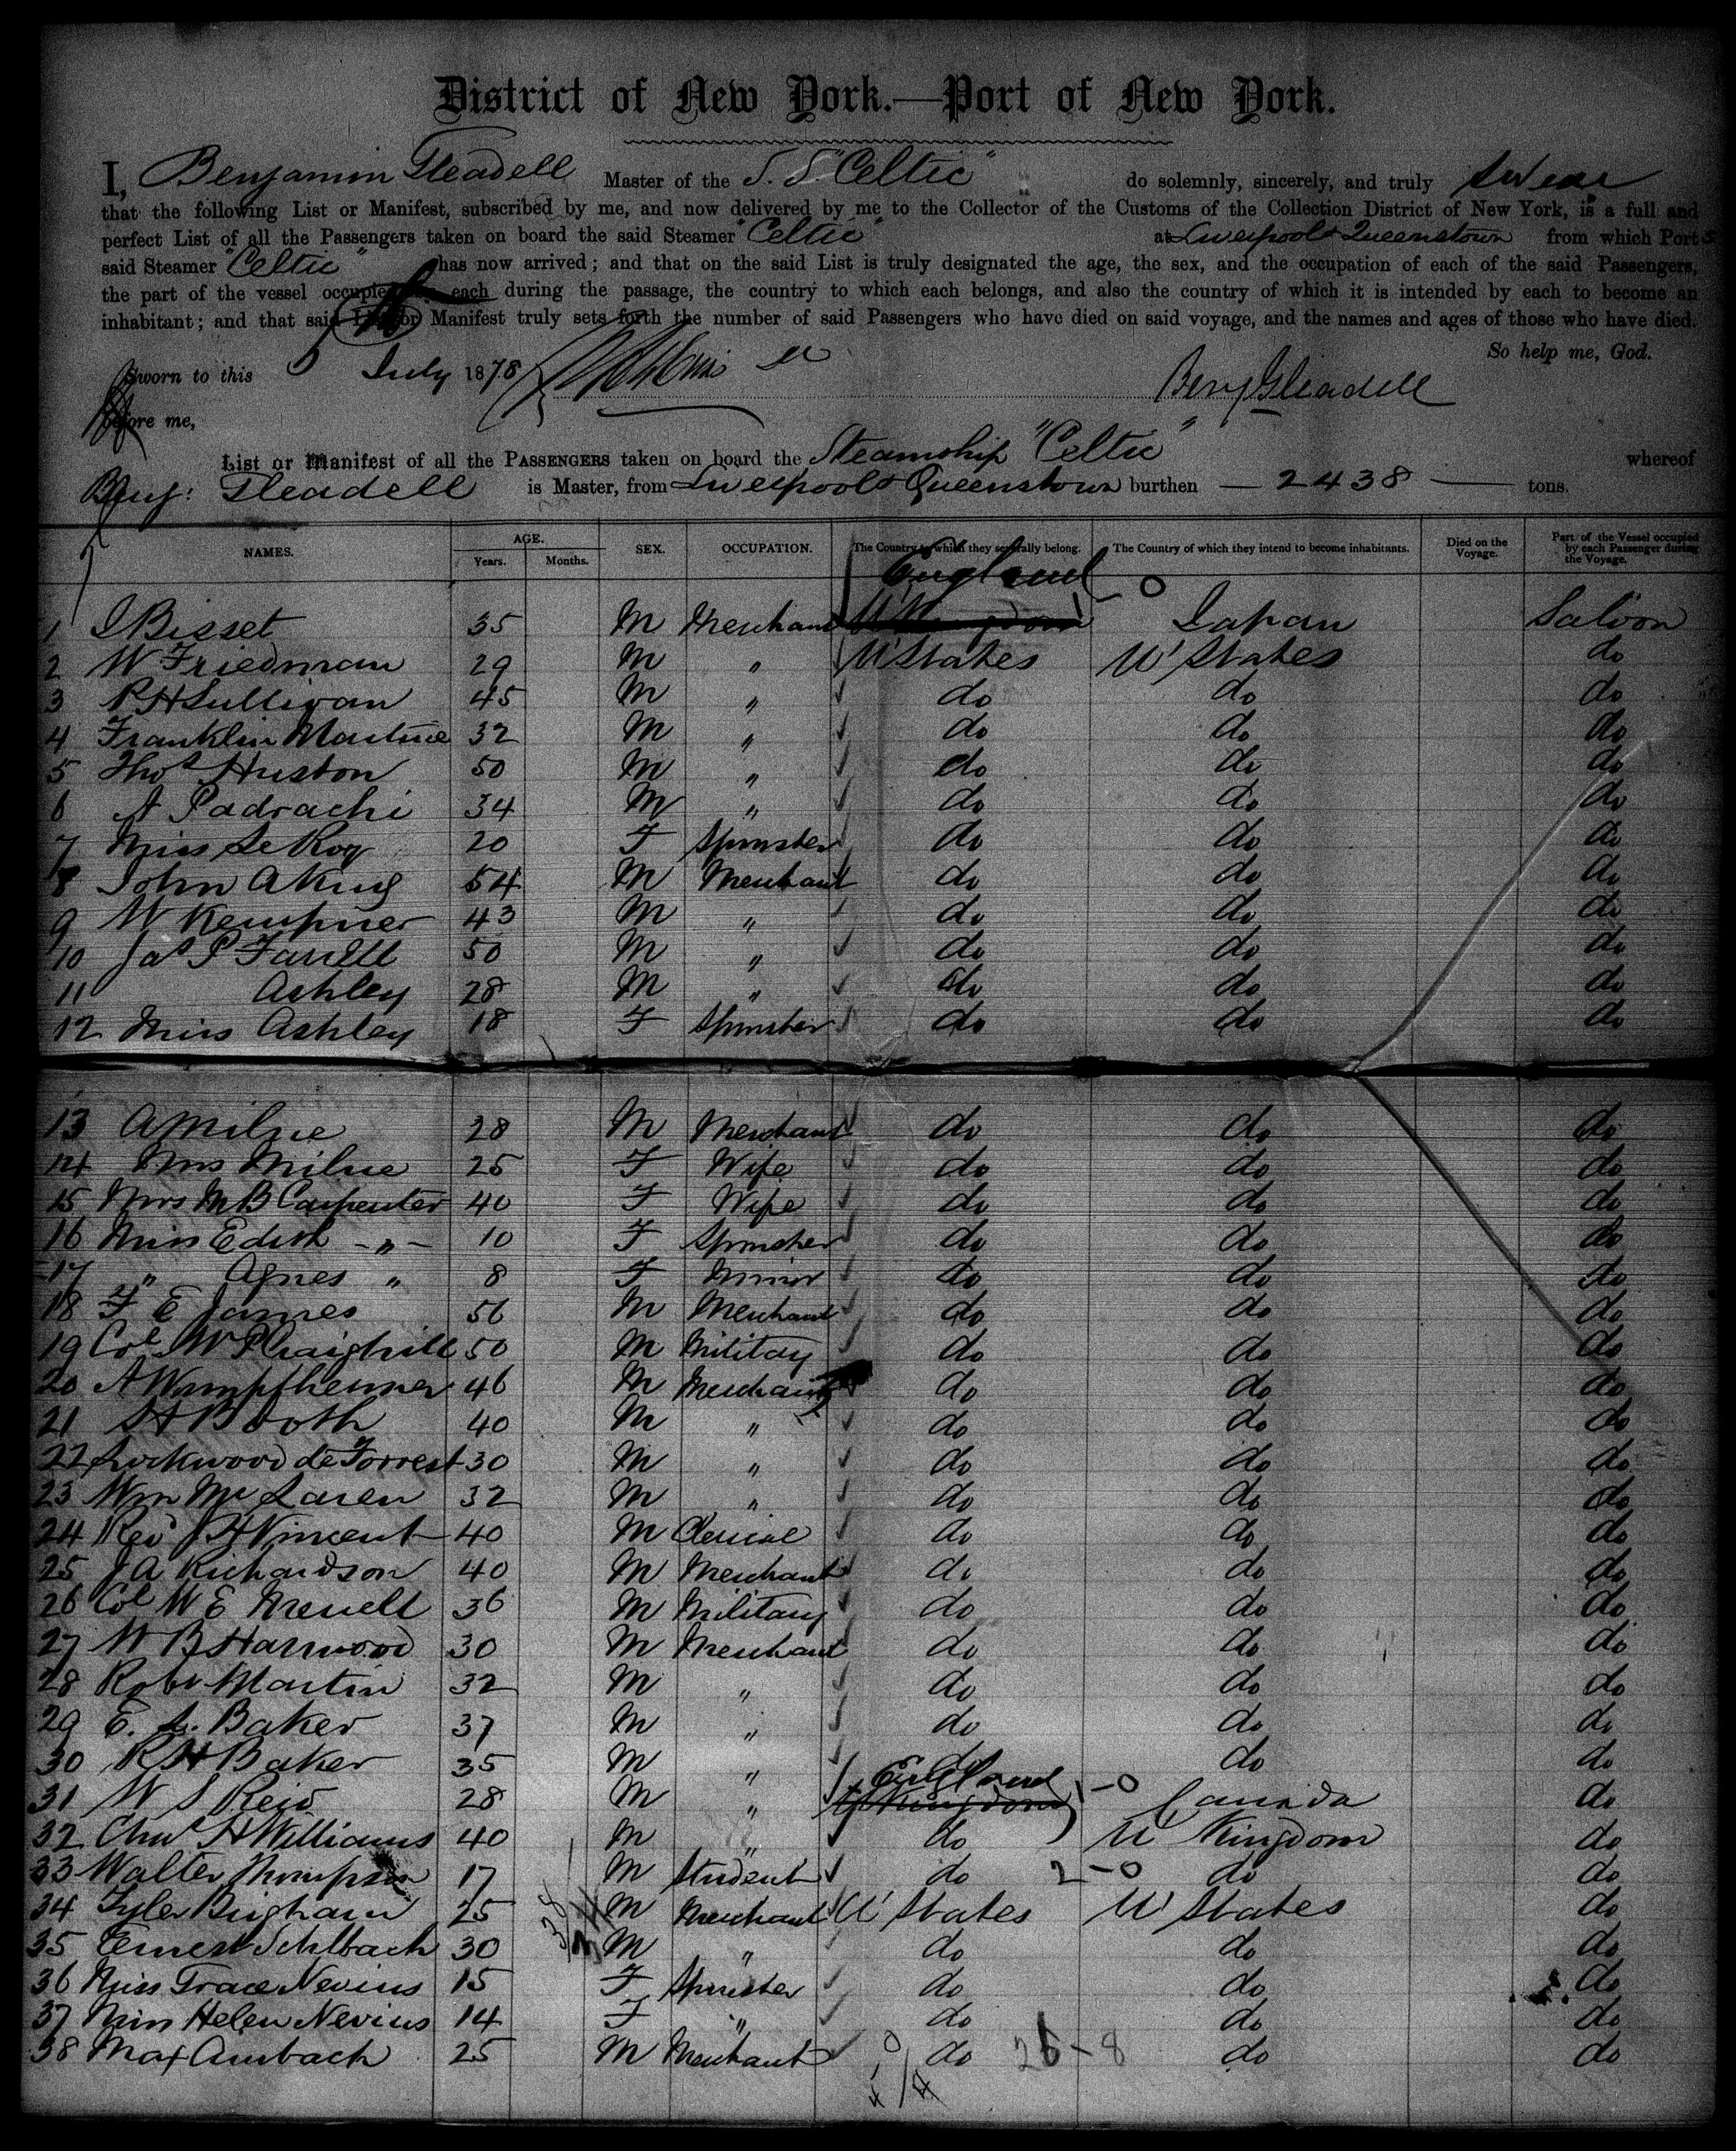 District of New York.—Port of New York.
I, Benjamin Gleadell Master of the S.S. "Celtic" do solemnly, sincerely, and truly swear
that the following List or Manifest, subscribed by me, and now delivered by me to the Collector of the Customs of the Collection District of New York, is a full and
perfect List of all the Passengers taken on board the said Steamer "Celtic" at Liverpool & Queenstown from which Ports
said Steamer "Celtic" has now arrived; and that on the said List is truly designated the age, the sex, and the occupation of each of the said Passengers,
the part of the vessel occupied by each during the passage, the country to which each belongs, and also the country of which it is intended by each to become an
inhabitant; and that said List or Manifest truly sets forth the number of said Passengers who have died on said voyage, and the names and ages of those who have died.
So help me, God.
Sworn to this July 1878
Benj Gleadell
before me,
List or Manifest of all the PASSENGERS taken on board the Steamship "Celtic" whereof
Benj: Gleadell is Master, from Liverpool & Queenstown burthen — 2438 — tons.
NAMES. AGE. Years. Months. SEX. OCCUPATION. The Country to which they severally belong. The Country of which they intend to become inhabitants. Died on the Voyage. Part of the Vessel occupied by each Passenger during the Voyage.
England
1 Bisset 35 M Merchant U Kingdom - 0 Japan Saloon
2 W Friedman 29 M " U States U States do
3 P H Sullivan 45 M " do do do
4 Franklin Martine 32 M " do do do
5 Thos Huston 50 M " do do do
6 A Padrachi 34 M " do do do
7 Miss Le Roy 20 F Spinster do do do
8 John A King 54 M Merchant do do do
9 W Kempner 43 M " do do do
10 Jas P Farrell 50 M " do do do
11 Ashley 28 M " do do do
12 Miss Ashley 18 F Spinster do do do
13 A Milne 28 M Merchant do do do
14 Mrs Milne 25 F Wife do do do
15 Mrs M B Carpenter 40 F Wife do do do
16 Miss Edith - " - 10 F Spinster do do do
17 " Agnes " 8 F Minor do do do
18 F E James 56 M Merchant do do do
19 Col W P Craighill 50 M Military do do do
20 A Wimpfheimer 46 M Merchant do do do
21 Booth 40 M " do do do
22 Lockwood de Forrest 30 M " do do do
23 Wm Mc Laren 32 M " do do do
24 Rev J H Vincent 40 M Clerical do do do
25 J A Richardson 40 M Merchant do do do
26 Col W E Merrell 36 M Military do do do
27 W B Harwood 30 M Merchant do do do
28 Robt Martin 32 M " do do do
29 E. L. Baker 37 M " do do do
30 R H Baker 35 M " do do do
England
31 W S Reid 28 M " U Kingdom - 0 Canada do
32 Chas H Williams 40 M " do U Kingdom do
33 Walter Thompson 17 M Student do 2 - 0 do do
34 Tyler Bigham 25 M Merchant U States U States do
35 Ernest Sehlbach 30 M " do do do
36 Miss Grace Nevius 15 F Spinster do do do
37 Miss Helen Nevius 14 F " do do do
38 Max Ambach 25 M Merchant do 26 - 8 do do